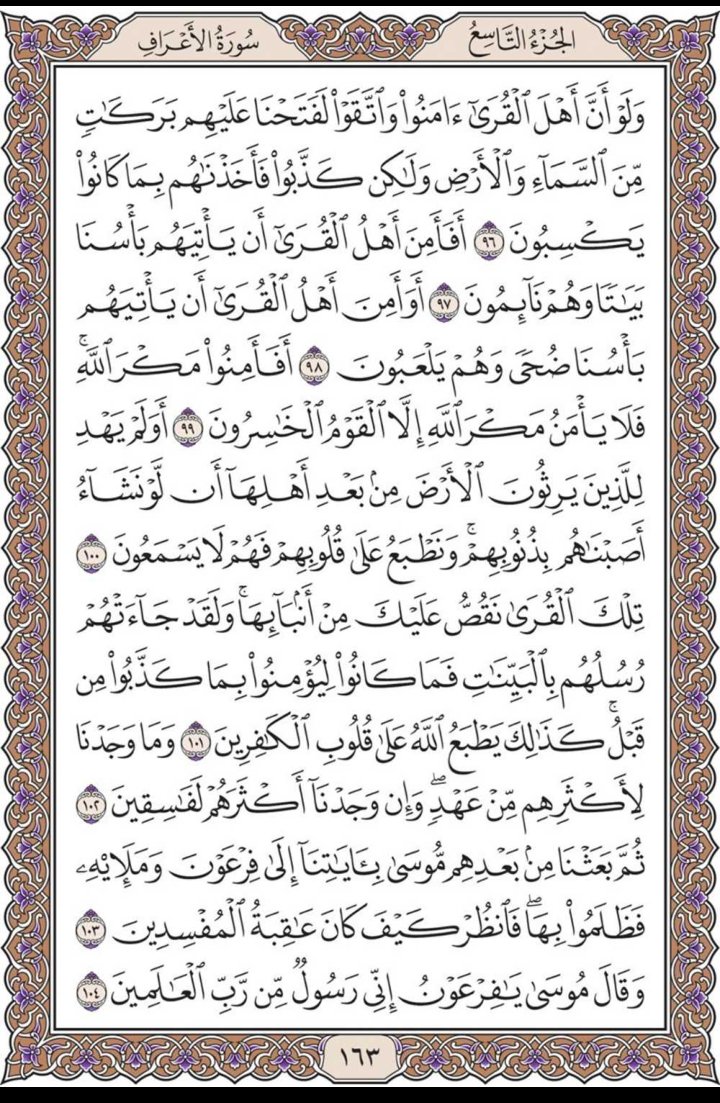 الجُزْءُ التَّاسِعُ
سُورَةُ الأَعْرَافِ
وَلَوْ أَنَّ أَهْلَ ٱلْقُرَىٰٓ ءَامَنُوا۟ وَٱتَّقَوْا۟ لَفَتَحْنَا عَلَيْهِم بَرَكَٰتٍ
مِّنَ ٱلسَّمَآءِ وَٱلْأَرْضِ وَلَٰكِن كَذَّبُوا۟ فَأَخَذْنَٰهُم بِمَا كَانُوا۟
يَكْسِبُونَ ٩٦ أَفَأَمِنَ أَهْلُ ٱلْقُرَىٰٓ أَن يَأْتِيَهُم بَأْسُنَا
بَيَٰتًا وَهُمْ نَآئِمُونَ ٩٧ أَوَأَمِنَ أَهْلُ ٱلْقُرَىٰٓ أَن يَأْتِيَهُم
بَأْسُنَا ضُحًى وَهُمْ يَلْعَبُونَ ٩٨ أَفَأَمِنُوا۟ مَكْرَ ٱللَّهِۚ
فَلَا يَأْمَنُ مَكْرَ ٱللَّهِ إِلَّا ٱلْقَوْمُ ٱلْخَٰسِرُونَ ٩٩ أَوَلَمْ يَهْدِ
لِلَّذِينَ يَرِثُونَ ٱلْأَرْضَ مِنۢ بَعْدِ أَهْلِهَآ أَن لَّوْ نَشَآءُ
أَصَبْنَٰهُم بِذُنُوبِهِمْۚ وَنَطْبَعُ عَلَىٰ قُلُوبِهِمْ فَهُمْ لَا يَسْمَعُونَ ١٠٠
تِلْكَ ٱلْقُرَىٰ نَقُصُّ عَلَيْكَ مِنْ أَنۢبَآئِهَاۚ وَلَقَدْ جَآءَتْهُمْ
رُسُلُهُم بِٱلْبَيِّنَٰتِ فَمَا كَانُوا۟ لِيُؤْمِنُوا۟ بِمَا كَذَّبُوا۟ مِن
قَبْلُۚ كَذَٰلِكَ يَطْبَعُ ٱللَّهُ عَلَىٰ قُلُوبِ ٱلْكَٰفِرِينَ ١٠١ وَمَا وَجَدْنَا
لِأَكْثَرِهِم مِّنْ عَهْدٍۖ وَإِن وَجَدْنَآ أَكْثَرَهُمْ لَفَٰسِقِينَ ١٠٢
ثُمَّ بَعَثْنَا مِنۢ بَعْدِهِم مُّوسَىٰ بِـَٔايَٰتِنَآ إِلَىٰ فِرْعَوْنَ وَمَلَإِي۟هِۦ
فَظَلَمُوا۟ بِهَاۖ فَٱنظُرْ كَيْفَ كَانَ عَٰقِبَةُ ٱلْمُفْسِدِينَ ١٠٣
وَقَالَ مُوسَىٰ يَٰفِرْعَوْنُ إِنِّي رَسُولٌ مِّن رَّبِّ ٱلْعَٰلَمِينَ ١٠٤
١٦٣